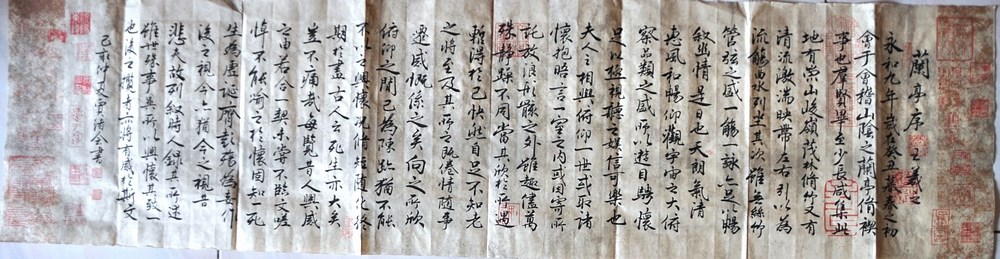 蘭亭序 王羲之
永和九年歲在癸丑暮春之初
會于會稽山陰之蘭亭脩稧
事也羣賢畢至少長咸集此
地有崇山峻嶺茂林脩竹又有
清流激湍映帶左右引以為
流觴曲水列坐其次雖無絲竹
管弦之盛一觴一詠亦足以暢
敘幽情是日也天朗氣清
惠風和暢仰觀宇宙之大俯
察品類之盛所以遊目騁懷
足以極視聽之娛信可樂也
夫人之相與俯仰一世或取諸
懷抱晤言一室之內或因寄所
託放浪形骸之外雖趣萬
殊静躁不同當其欣於所遇
暫得於己快然自足不知老
之將至及其所之既倦情隨事
遷感慨係之矣向之所欣
俯仰之間已為陳跡猶不能
不以之興懷況脩短隨化終
期於盡古人云死生亦大矣
豈不痛哉每覽昔人興感
之由若合一契未嘗不臨文嗟
悼不能喻之於懷固知一死
生為虛誕齊彭殤為妄作
後之視今亦猶今之視昔
悲夫故列敘時人錄其所述
雖世殊事異所以興懷其致一
也後之攬者亦將有感於斯文
己亥仲夏書